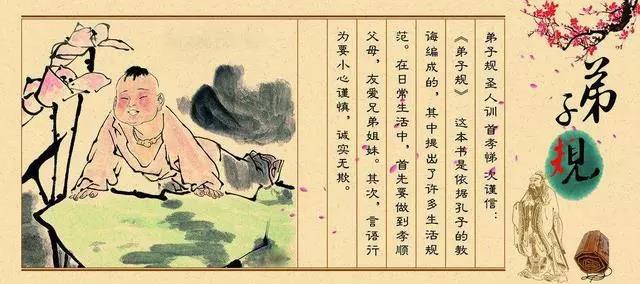 弟子規
弟子规圣人训 首孝悌次谨信：
《弟子规》 这本书是依据孔子的教
诲编成的，其中提出了许多生活规
范。在日常生活中，首先要做到孝顺
父母，友爱兄弟姐妹。其次，言语行
为要小心谨慎，诚实无欺。